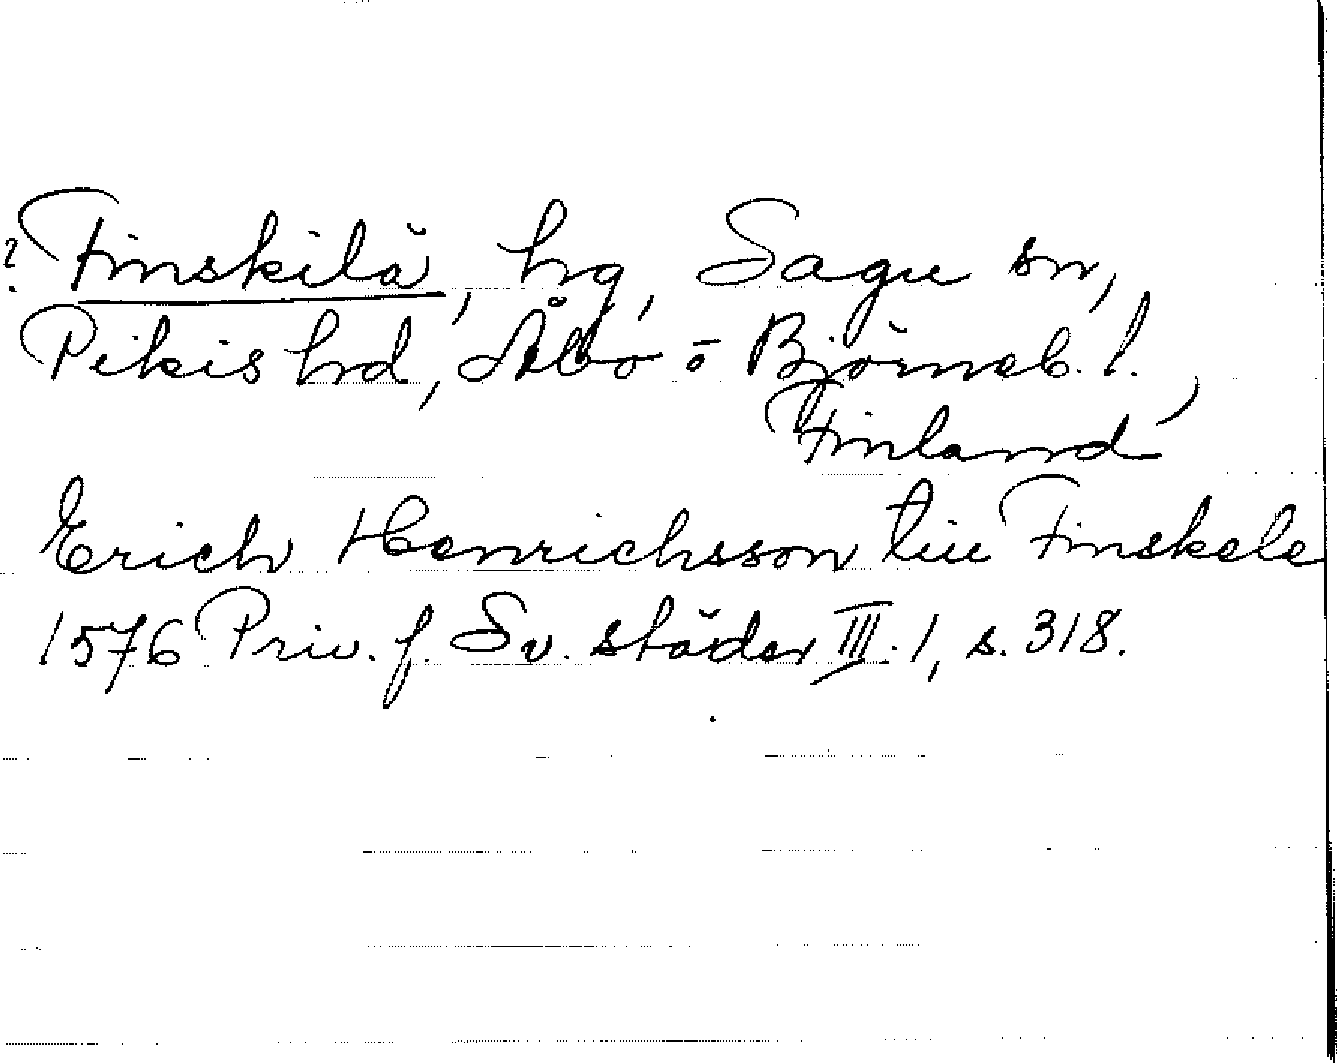 ? Finskilä, hg, Sagu sn,
Pikis hd, Åbo ō Björneb. l.,
Finland
Erich Henrichsson till Finskele
1576 Priv. f. Sv. städer III. 1, s. 318.